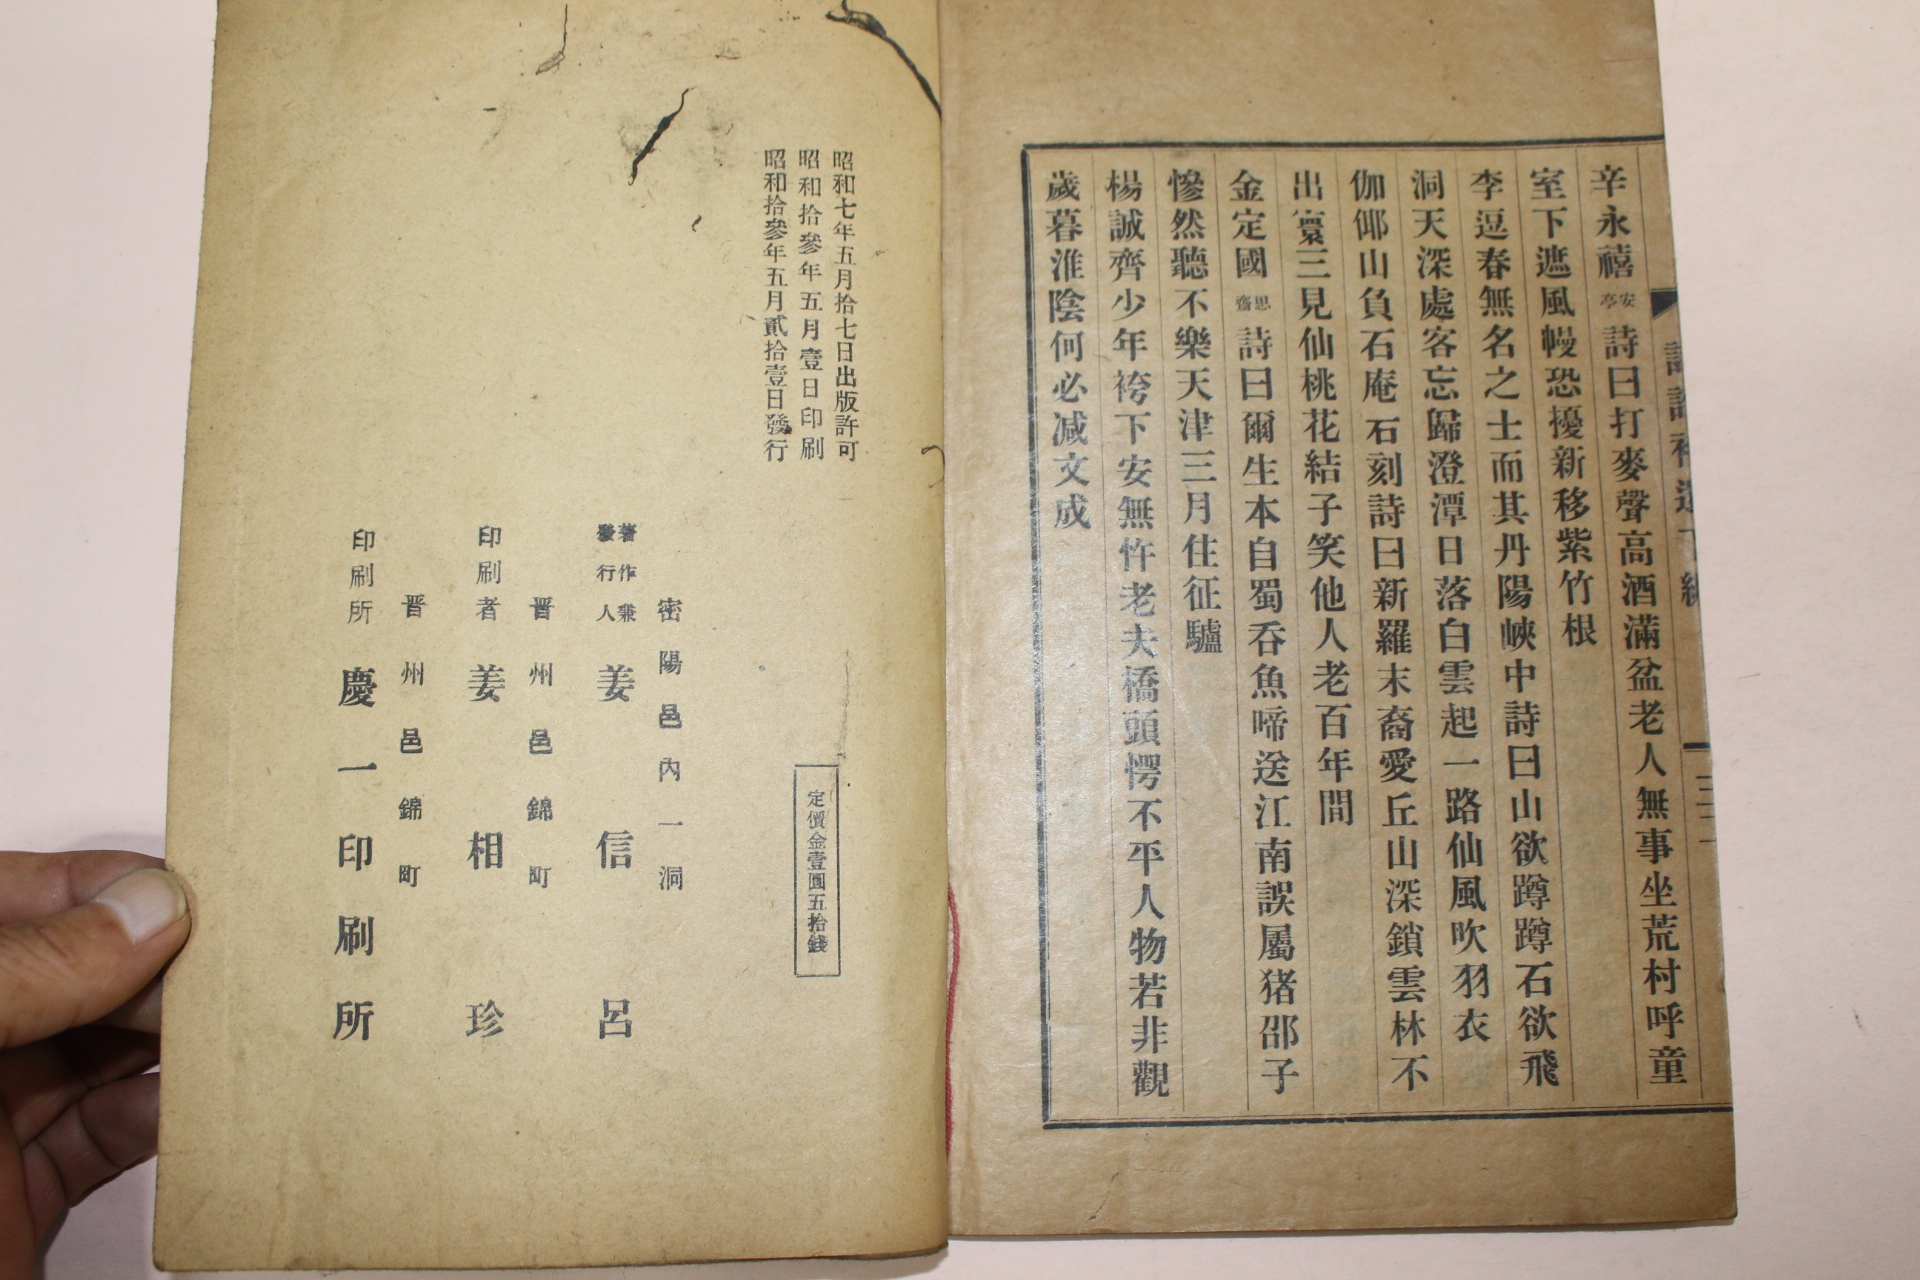 辛永禧安亭詩曰打麥聲高酒滿盆老人無事坐荒村呼童
室下遮風幔恐擾新移紫竹根
李逗春無名之士而其丹陽峽中詩曰山欲蹲蹲石欲飛
洞天深處客忘歸澄潭日落白雲起一路仙風吹羽衣
伽倻山負石庵石刻詩曰新羅末裔愛丘山深鎖雲林不
出寰三見仙桃花結子笑他人老百年間
金定國思齋詩曰爾生本自蜀呑魚啼送江南誤屬猪邵子
慘然聽不樂天津三月住征驢
楊誠齊少年袴下安無忤老夫橋頭愕不平人物若非觀
歲暮淮陰何必减文成
昭和七年五月拾七日出版許可
昭和拾參年五月壹日印刷
昭和拾參年五月貳拾壹日發行
定價金壹圓五拾錢
密陽邑內一洞
著作兼
發行人 姜信呂
晋州邑錦町
印刷者 姜相珍
晋州邑錦町
印刷所 慶一印刷所